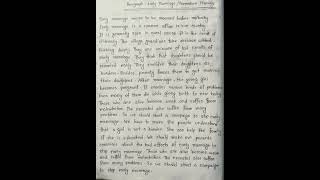 Paragraph - Early Marriage / Premature Marriage
Early marriage means to be married before maturity.
Early marriage is a common affair in our society.
It is generally seen in rural areas. It is the result of
illiteracy. The village guardians take decision without
thinking deeply. They are unaware of bad results of
early marriage. They think that daughters should be
married early. They consider their daughters as
burden. Besides, poverty forces them to get married
their daughters. After marriage, the young girl
becomes pregnant. It creates various kinds of problems.
Even many of them die while giving birth to new baby.
Those who are alive become weak and suffer from
malnutrition. The neonates also suffer from many
problems. So we should start a campaign to stop early
marriage. We have to make the people understand
that a girl is not a burden. She can help the family
if she is educated. We should make our parents
conscious about the bad effects of early marriage to
stop early marriage. Those who are alive become weak
and suffer from malnutrition. The neonates also suffer
from many problems. So we should start a campaign
to stop early marriage.